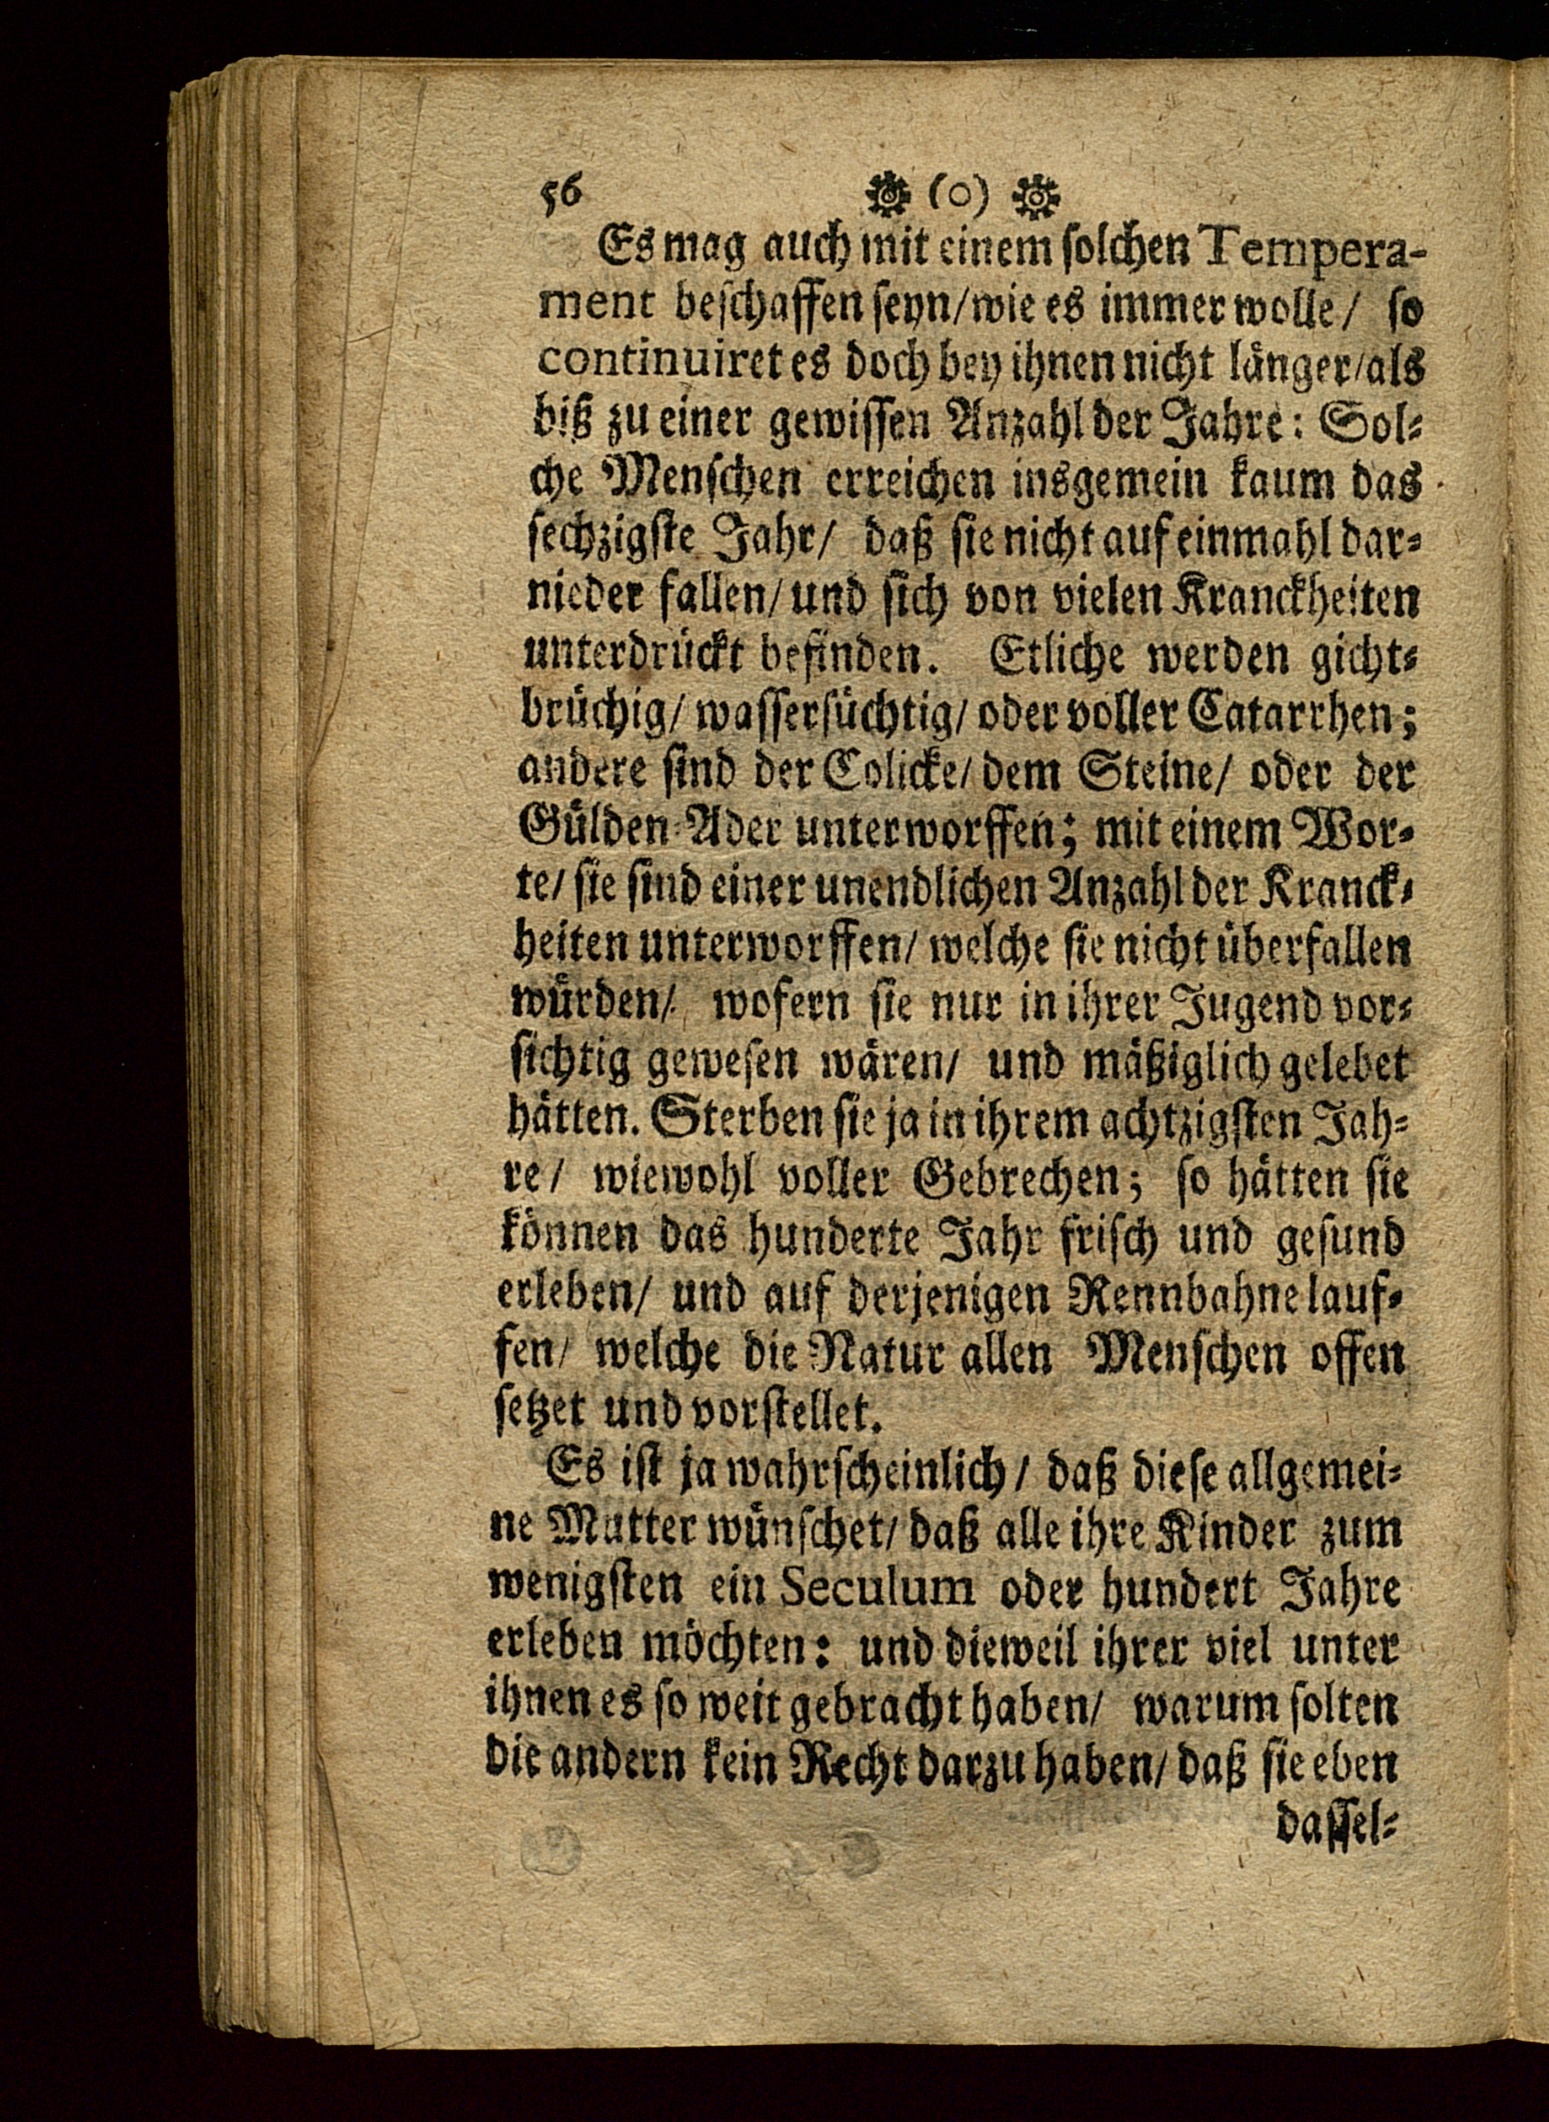 56 (o)
Es mag auch mit einem solchen Tempera-
ment beschaffen seyn/ wie es immer wolle/ so
continuiret es doch bey ihnen nicht länger/ als
biß zu einer gewissen Anzahl der Jahre: Sol-
che Menschen erreichen insgemein kaum das
sechzigste Jahr/ daß sie nicht auf einmahl dar-
nieder fallen/ und sich von vielen Kranckheiten
unterdrückt befinden. Etliche werden gicht-
brüchig/ wassersüchtig/ oder voller Catarrhen;
andere sind der Colicke/ dem Steine/ oder der
Gülden-Ader unterworffen; mit einem Wor-
te/ sie sind einer unendlichen Anzahl der Kranck-
heiten unterworffen/ welche sie nicht überfallen
würden/ wofern sie nur in ihrer Jugend vor-
sichtig gewesen wären/ und mäßiglich gelebet
hätten. Sterben sie ja in ihrem achtzigsten Jah-
re/ wiewohl voller Gebrechen; so hätten sie
können das hunderte Jahr frisch und gesund
erleben/ und auf derjenigen Rennbahne lauf-
fen/ welche die Natur allen Menschen offen
setzet und vorstellet.
Es ist ja wahrscheinlich/ daß diese allgemei-
ne Mutter wünschet/ daß alle ihre Kinder zum
wenigsten ein Seculum oder hundert Jahre
erleben möchten: und dieweil ihrer viel unter
ihnen es so weit gebracht haben/ warum solten
die andern kein Recht darzu haben/ daß sie eben
dassel-